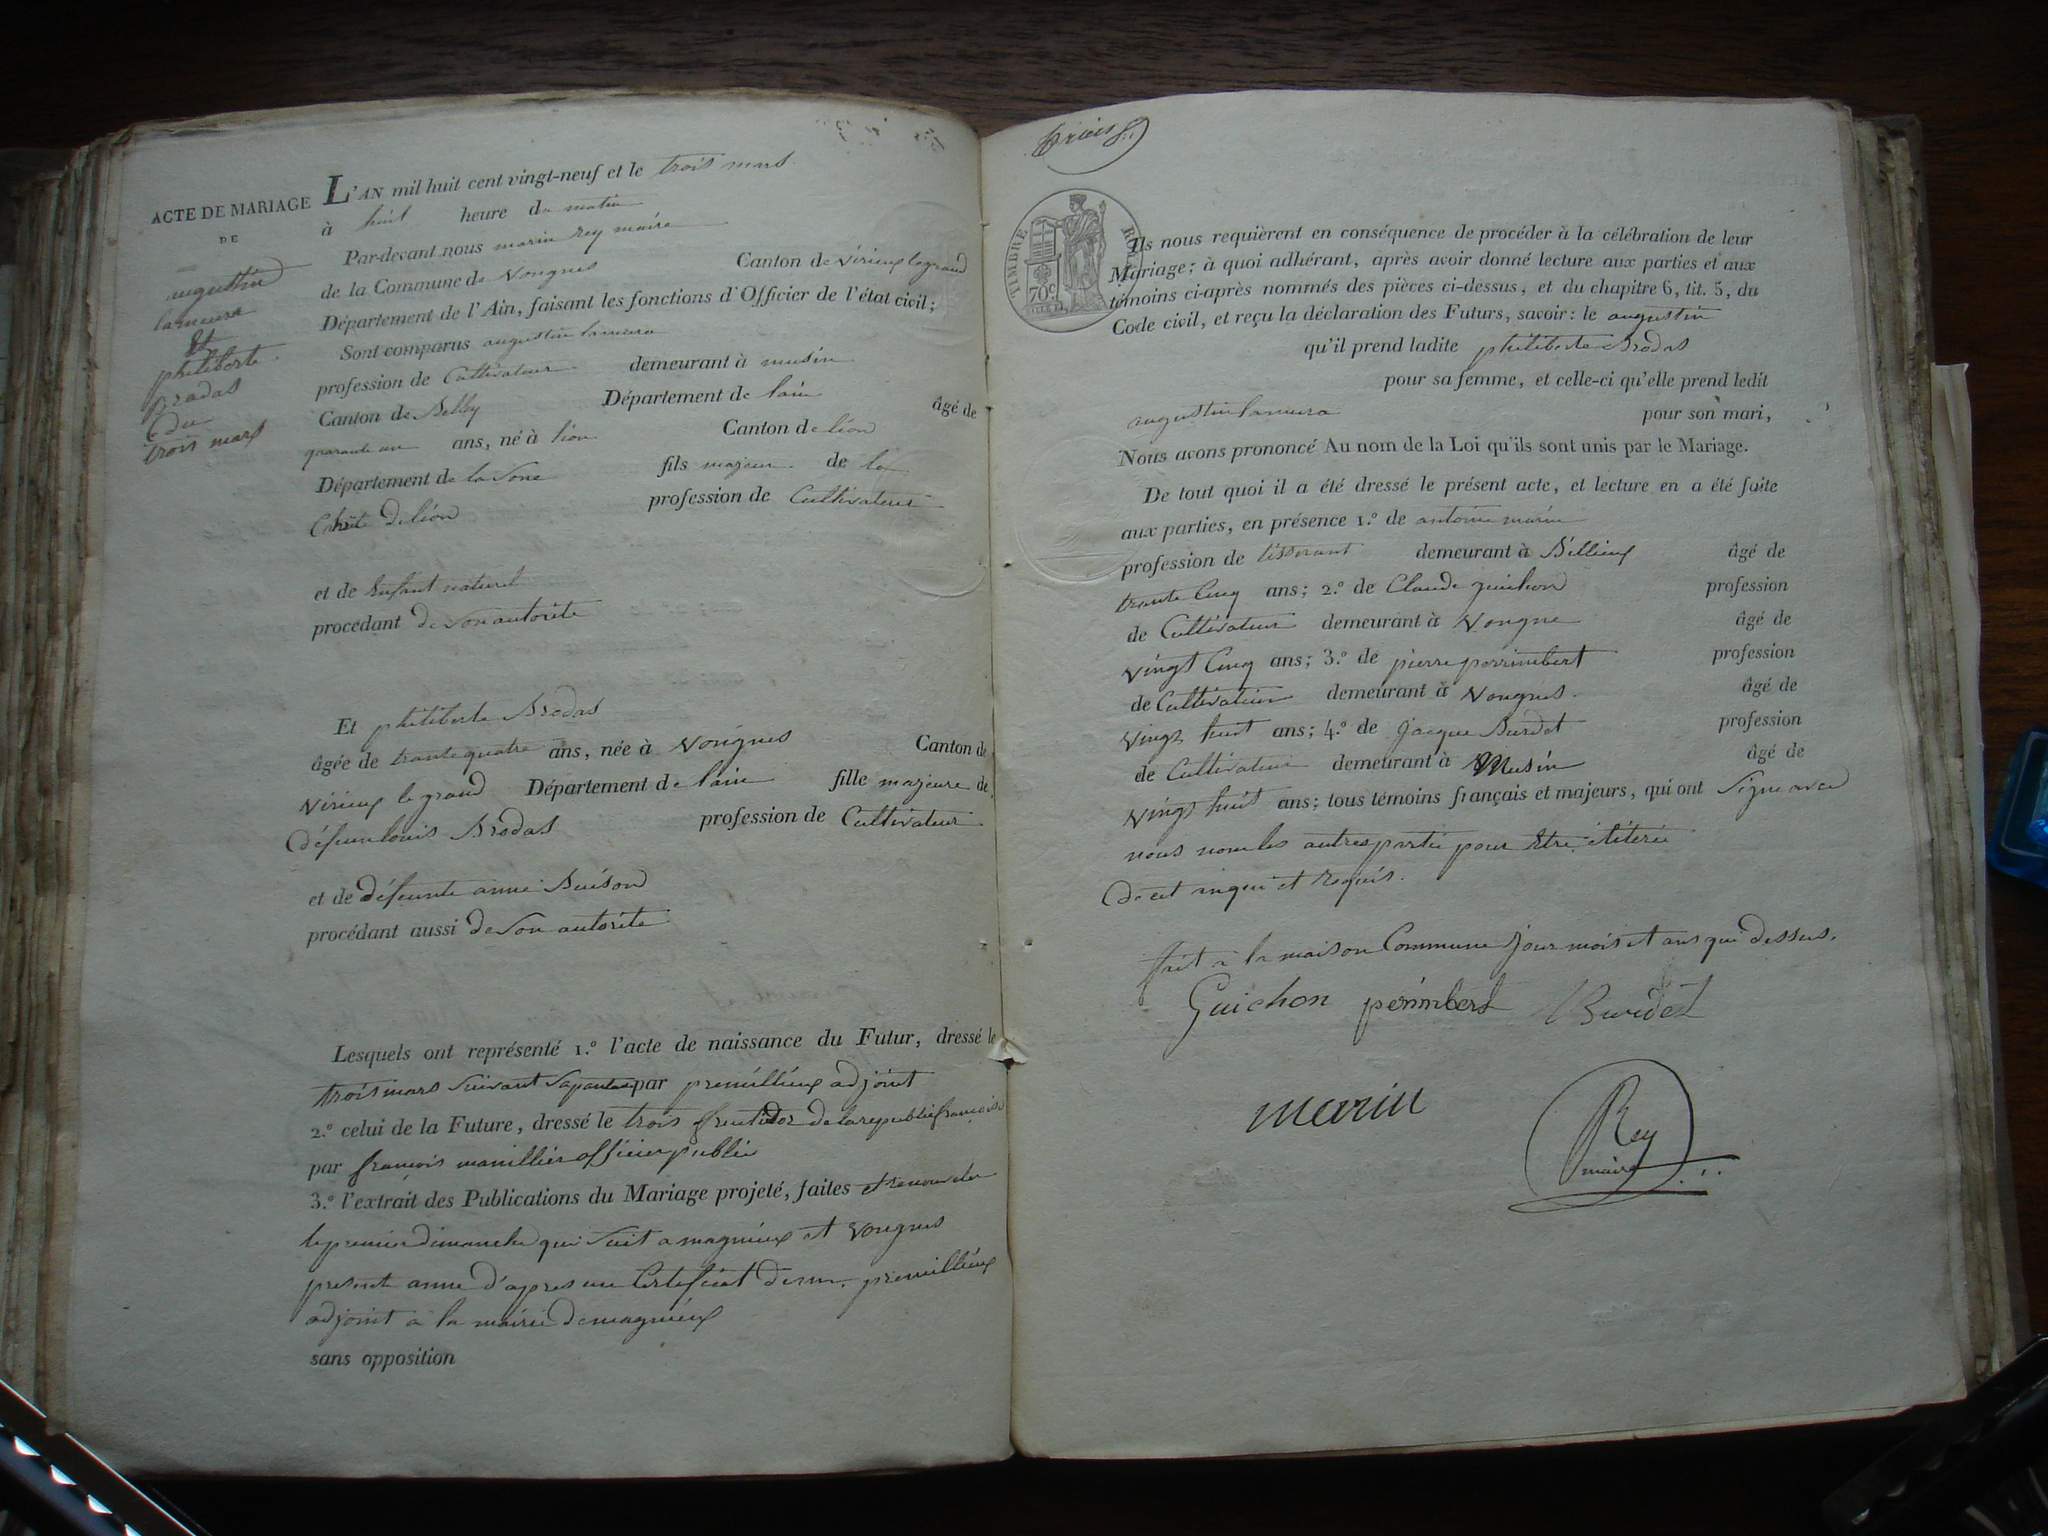 ACTE DE MARIAGE
DE
augustin
lamura
Et
philiberte
Brodas
du
trois mars
L'AN mil huit cent vingt-neuf et le trois mars
à huit heure du matin
Par-devant nous marin rey maire
de la Commune de Vongnes Canton de Virieux le grand
Département de l'Ain, faisant les fonctions d'Officier de l'état civil;
Sont comparus augustin lamura
profession de Cultivateur demeurant à musin
Canton de Belley Département de lain âgé de
quarante un ans, né à lion Canton de lion
Département de la Sone fils majeur de la
Charité de lion profession de Cultivateur
et de Enfant naturel
procédant de Son autorite
Et philiberte Brodas
âgée de trante quatre ans, née à Vongnes Canton de
Virieux le grand Département de lain fille majeure de
défun louis Brodas profession de Cultivateur
et de défeunte anne Buison
procédant aussi de Son autorite
Lesquels ont représenté 1.º l'acte de naissance du Futur, dressé le
trois mars Suivant par premillieux adjoint
2.º celui de la Future, dressé le trois de la republic françoise
par françois manillier officier public
3.º l'extrait des Publications du Mariage projeté, faites et
le premier dimanche qui Suit a magnieux et Vongnes
presente anne d'apres un Certificat de mr. premillieux
adjoint a la mairie de magnieux
sans opposition
TIMBRE ROYAL
70c
Ils nous requièrent en conséquence de procéder à la célébration de leur
Mariage; à quoi adhérant, après avoir donné lecture aux parties et aux
témoins ci-après nommés des pièces ci-dessus, et du chapitre 6, tit. 5, du
Code civil, et reçu la déclaration des Futurs, savoir: le augustin
qu'il prend ladite philiberte Brodas
pour sa femme, et celle-ci qu'elle prend ledit
augustin lamura pour son mari,
Nous avons prononcé Au nom de la Loi qu'ils sont unis par le Mariage.
De tout quoi il a été dressé le présent acte, et lecture en a été faite
aux parties, en présence 1.º de antoine marin
profession de tisserant demeurant à Billieux âgé de
trante Cinq ans; 2.º de Claude guichon profession
de Cultivateur demeurant à Vongne âgé de
vingt Cinq ans; 3.º de pierre perrimbert profession
de Cultivateur demeurant à Vongnes. âgé de
vingt huit ans; 4.º de Jacque Burdet profession
de Cultivateur demeurant à Musin âgé de
vingt huit ans; tous témoins français et majeurs, qui ont Signe avec
nous non les autres partie pour Etre iliterée
de cet enqui et requis.
fait à la maison Commune jour mois et ans que dessus.
Guichon perimbert Burdet
marin
Rey
maire